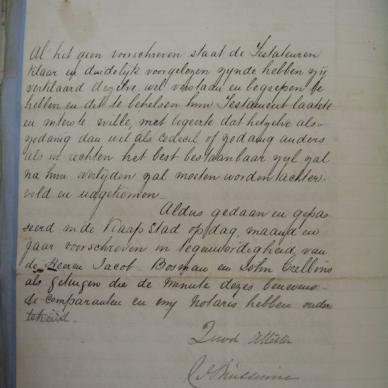 Al het geen voorschreven staat de Testateuren
klaar en duidelijk voorgelezen zynde hebben zij
verklaard dezelve wel verstaan en begrepen te
hebben en dit te behelsen hun Testament laatste
en uiterste wille, met begeerte dat hetzelve als
zodanig dan wel als Codicil of zodanig anders
als in rechten het best bestaanbaar zyl zal
na hun overlijden zal moeten worden achter
vold en nagekomen.
Aldus gedaan en gepas
seerd in de Kaap Stad op dag, maand en
jaar voorschreven in tegenwoordigheid van
de Heeren Jacob Bosman en John Collins
als getuigen die de minute dezes benevens
de comparanten en my Notaris hebben onder
tekend.
Quod Attestor